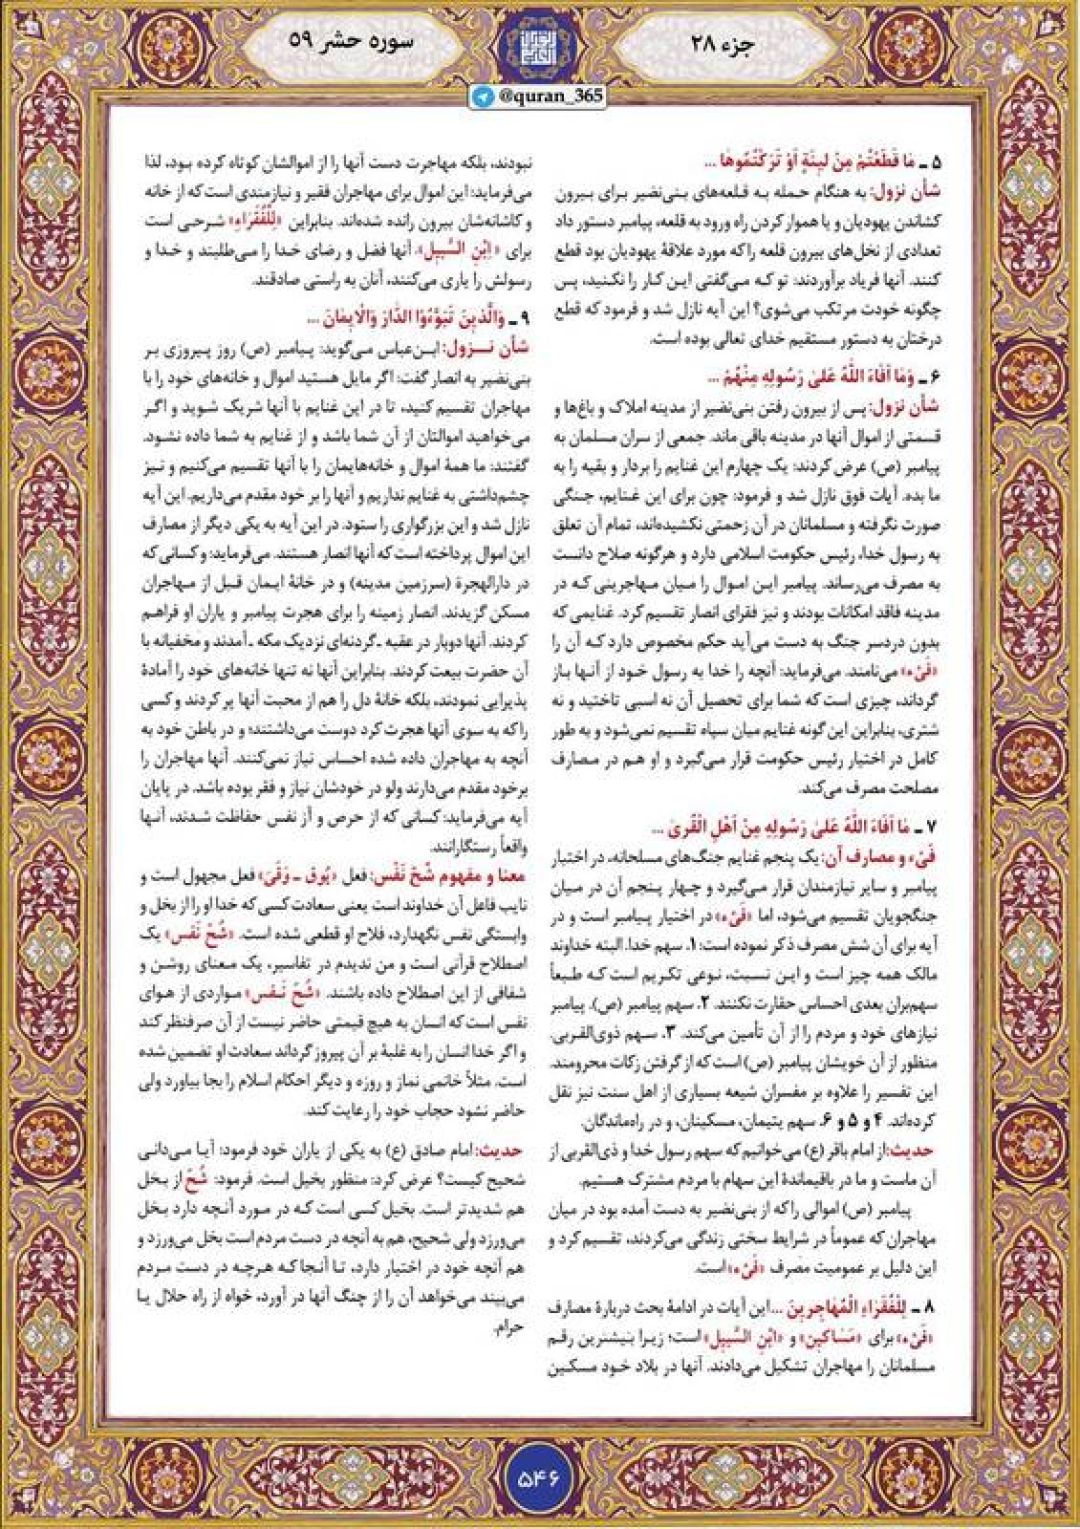 جزء ۲۸
سوره حشر ۵۹
@quran_365
۵ ـ مٰا قَطَعْتُمْ مِنْ لینَةٍ اَوْ تَرَکْتُمُوهٰا ...
شأن نزول: به هنگام حمله به قلعه‌های بنی‌نضیر برای بیرون
کشاندن یهودیان و یا هموار کردن راه ورود به قلعه، پیامبر دستور داد
تعدادی از نخل‌های بیرون قلعه را که مورد علاقهٔ یهودیان بود قطع
کنند. آنها فریاد برآوردند: تو که می‌گفتی این کار را نکنید، پس
چگونه خودت مرتکب می‌شوی؟ این آیه نازل شد و فرمود که قطع
درختان به دستور مستقیم خدای تعالی بوده است.
۶ ـ وَمٰا اَفٰاءَ اللّٰهُ عَلیٰ رَسُولِهِ مِنْهُمْ ...
شأن نزول: پس از بیرون رفتن بنی‌نضیر از مدینه املاک و باغ‌ها و
قسمتی از اموال آنها در مدینه باقی ماند. جمعی از سران مسلمان به
پیامبر (ص) عرض کردند: یک چهارم این غنایم را بردار و بقیه را به
ما بده. آیات فوق نازل شد و فرمود: چون برای این غنایم، جنگی
صورت نگرفته و مسلمانان در آن زحمتی نکشیده‌اند، تمام آن تعلق
به رسول خدا، رئیس حکومت اسلامی دارد و هرگونه صلاح دانست
به مصرف می‌رساند. پیامبر این اموال را میان مهاجرینی که در
مدینه فاقد امکانات بودند و نیز فقرای انصار تقسیم کرد. غنایمی که
بدون دردسر جنگ به دست می‌آید حکم مخصوص دارد که آن را
«فَیْء» می‌نامند. می‌فرماید: آنچه را خدا به رسول خود از آنها باز
گرداند، چیزی است که شما برای تحصیل آن نه اسبی تاختید و نه
شتری، بنابراین این گونه غنایم میان سپاه تقسیم نمی‌شود و به طور
کامل در اختیار رئیس حکومت قرار می‌گیرد و او هم در مصارف
مصلحت مصرف می‌کند.
۷ ـ مٰا اَفٰاءَ اللّٰهُ عَلیٰ رَسُولِهِ مِنْ اَهْلِ الْقُریٰ ...
فَیْء و مصارف آن: یک پنجم غنایم جنگ‌های مسلحانه، در اختیار
پیامبر و سایر نیازمندان قرار می‌گیرد و چهار پنجم آن در میان
جنگجویان تقسیم می‌شود، اما «فَیْء» در اختیار پیامبر است و در
آیه برای آن شش مصرف ذکر نموده است: ۱. سهم خدا. البته خداوند
مالک همه چیز است و این نسبت، نوعی تکریم است که طبعاً
سهم‌بران بعدی احساس حقارت نکنند. ۲. سهم پیامبر (ص). پیامبر
نیازهای خود و مردم را از آن تأمین می‌کند. ۳. سهم ذوی‌القربی.
منظور از آن خویشان پیامبر (ص) است که از گرفتن زکات محرومند.
این تفسیر را علاوه بر مفسران شیعه بسیاری از اهل سنت نیز نقل
کرده‌اند. ۴ و ۵ و ۶. سهم یتیمان، مسکینان، و در راه‌ماندگان.
حدیث: از امام باقر (ع) می‌خوانیم که سهم رسول خدا و ذی‌القربی از
آن ماست و ما در باقیماندهٔ این سهام با مردم مشترک هستیم.
پیامبر (ص) اموالی را که از بنی‌نضیر به دست آمده بود در میان
مهاجران که عموماً در شرایط سختی زندگی می‌کردند، تقسیم کرد و
این دلیل بر عمومیت مصرف «فَیْء» است.
۸ ـ لِلْفُقَرٰاءِ الْمُهٰاجِرینَ ... این آیات در ادامهٔ بحث دربارهٔ مصارف
«فَیْء» برای «مَسٰاکین» و «ابْنِ السَّبیلِ» است؛ زیرا بیشترین رقم
مسلمانان را مهاجران تشکیل می‌دادند. آنها در بلاد خود مسکین
نبودند، بلکه مهاجرت دست آنها را از اموالشان کوتاه کرده بود، لذا
می‌فرماید: این اموال برای مهاجران فقیر و نیازمندی است که از خانه
و کاشانه‌شان بیرون رانده شده‌اند. بنابراین «لِلْفُقَرٰاءِ» شرحی است
برای «ابْنِ السَّبیلِ». آنها فضل و رضای خدا را می‌طلبند و خدا و
رسولش را یاری می‌کنند، آنان به راستی صادقند.
۹ ـ وَالَّذینَ تَبَوَّءُوا الدّٰارَ وَالْایمٰانَ ...
شأن نزول: ابن‌عباس می‌گوید: پیامبر (ص) روز پیروزی بر
بنی‌نضیر به انصار گفت: اگر مایل هستید اموال و خانه‌های خود را با
مهاجران تقسیم کنید، تا در این غنایم با آنها شریک شوید و اگر
می‌خواهید اموالتان از آن شما باشد و از غنایم به شما داده نشود.
گفتند: ما همهٔ اموال و خانه‌هایمان را با آنها تقسیم می‌کنیم و نیز
چشم‌داشتی به غنایم نداریم و آنها را بر خود مقدم می‌داریم. این آیه
نازل شد و این بزرگواری را ستود. در این آیه به یکی دیگر از مصارف
این اموال پرداخته است که آنها انصار هستند. می‌فرماید: و کسانی که
در دارالهجرة (سرزمین مدینه) و در خانهٔ ایمان قبل از مهاجران
مسکن گزیدند. انصار زمینه را برای هجرت پیامبر و یاران او فراهم
کردند. آنها دوبار در عقبه ـ گردنه‌ای نزدیک مکه ـ آمدند و مخفیانه با
آن حضرت بیعت کردند. بنابراین آنها نه تنها خانه‌های خود را آمادهٔ
پذیرایی نمودند، بلکه خانهٔ دل را هم از محبت آنها پر کردند و کسی
را که به سوی آنها هجرت کرد دوست می‌داشتند؛ و در باطن خود به
آنچه به مهاجران داده شده احساس نیاز نمی‌کنند. آنها مهاجران را
برخود مقدم می‌دارند ولو در خودشان نیاز و فقر بوده باشد. در پایان
آیه می‌فرماید: کسانی که از حرص و آز نفس حفاظت شدند، آنها
واقعاً رستگارانند.
معنا و مفهوم شُحَّ نَفْس: فعل «یُوق ـ وَقَیَ» فعل مجهول است و
نایب فاعل آن خداوند است یعنی سعادت کسی که خدا او را از بخل و
وابستگی نفس نگهدارد، فلاح او قطعی شده است. «شُحّ نَفس» یک
اصطلاح قرآنی است و من ندیدم در تفاسیر، یک معنای روشن و
شفافی از این اصطلاح داده باشند. «شُحّ نَفس» مواردی از هوای
نفس است که انسان به هیچ قیمتی حاضر نیست از آن صرفنظر کند
و اگر خدا انسان را به غلبهٔ بر آن پیروز گرداند سعادت او تضمین شده
است. مثلاً خانمی نماز و روزه و دیگر احکام اسلام را بجا بیاورد ولی
حاضر نشود حجاب خود را رعایت کند.
حدیث: امام صادق (ع) به یکی از یاران خود فرمود: آیا می‌دانی
شحیح کیست؟ عرض کرد: منظور بخیل است. فرمود: شُحّ از بخل
هم شدیدتر است. بخیل کسی است که در مورد آنچه دارد بخل
می‌ورزد ولی شحیح، هم به آنچه در دست مردم است بخل می‌ورزد و
هم آنچه خود در اختیار دارد، تا آنجا که هرچه در دست مردم
می‌بیند می‌خواهد آن را از چنگ آنها در آورد، خواه از راه حلال یا
حرام.
۵۴۶